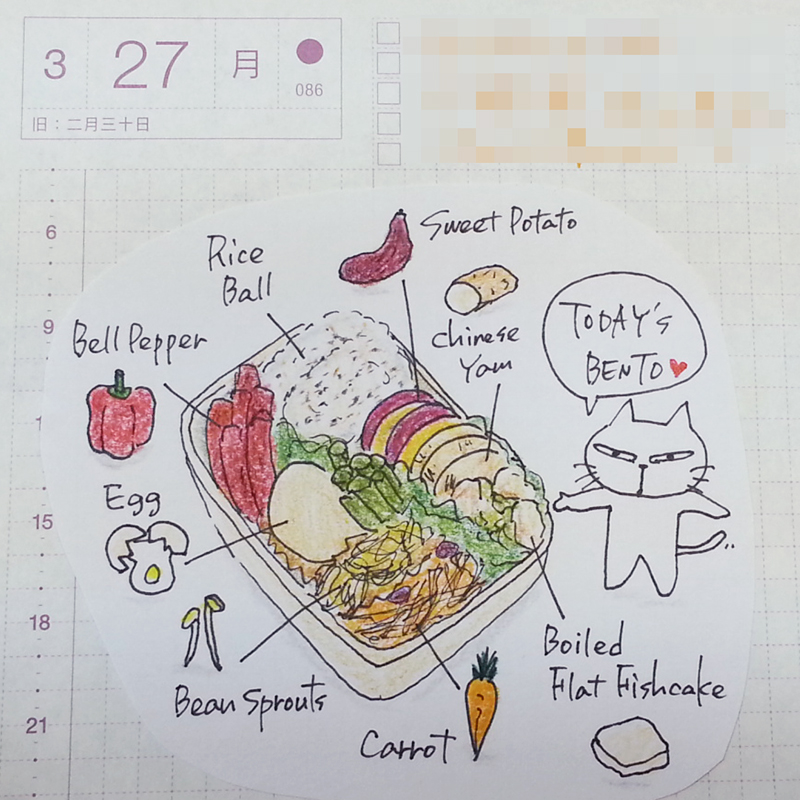 3 27 月
086
旧：二月三十日
6
9
1
15
18
21
Sweet Potato
Rice
Ball
Chinese
Yam
Bell Pepper
TODAY's
BENTO
Egg
Boiled
Flat Fishcake
Bean Sprouts
Carrot